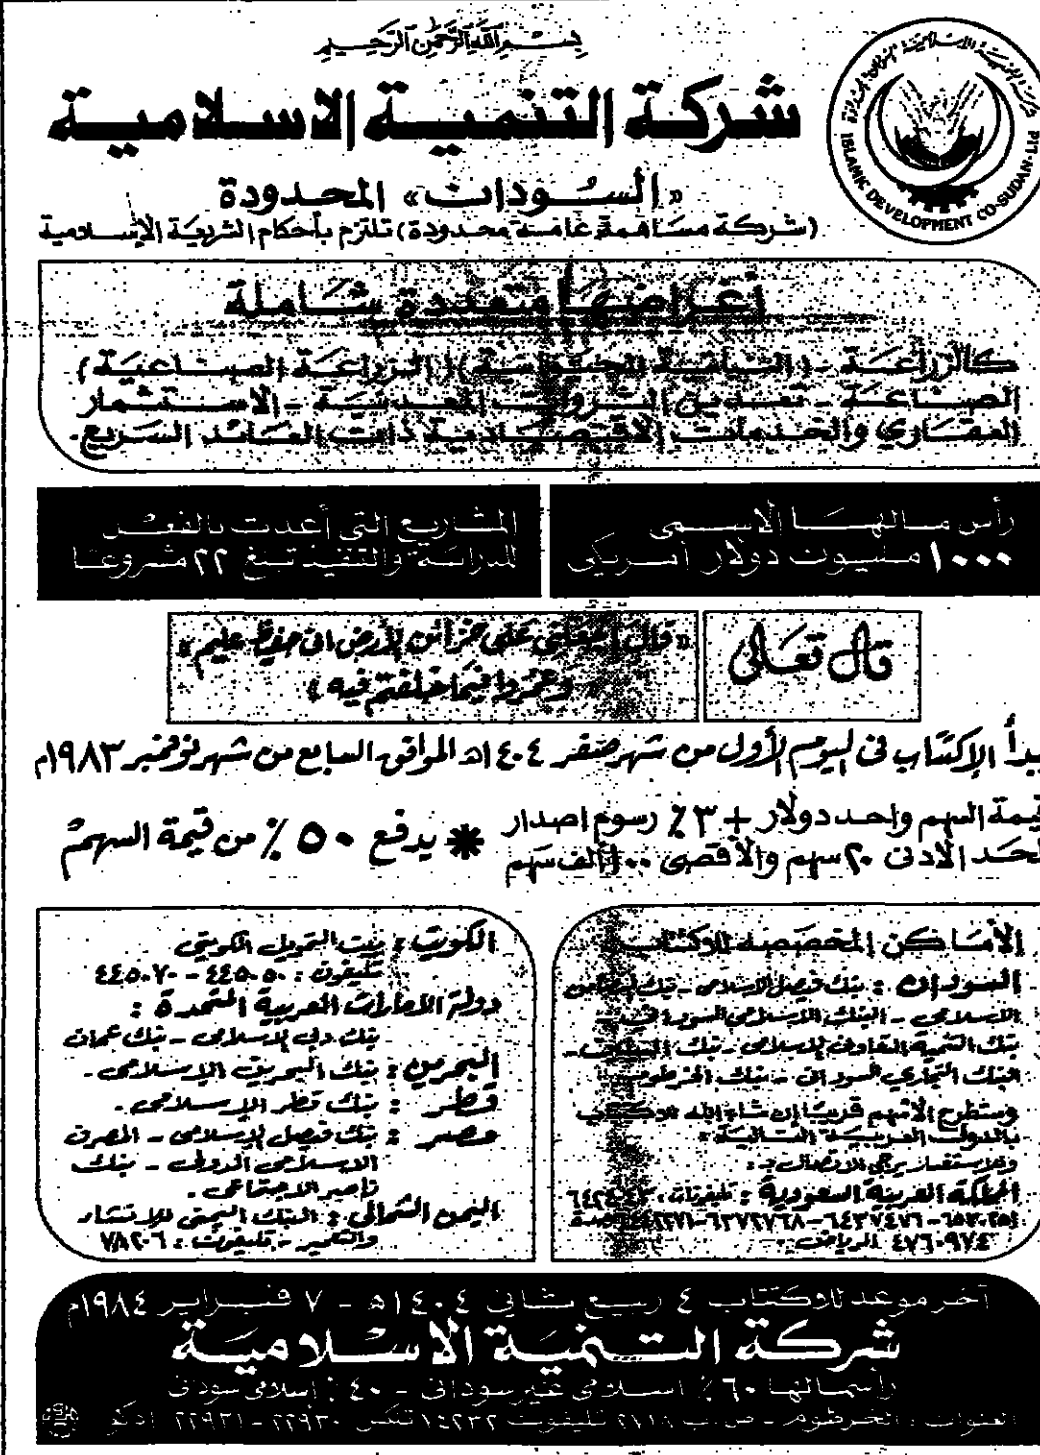 بسم الله الرحمن الرحيم
شركة التنمية الاسلامية
«السودان» المحدودة
(شركة مساهمة عامة محدودة) تلتزم بأحكام الشريعة الإسلامية
ISLAMIC DEVELOPMENT CO-SUDAN-LTD
أغراضها متعددة شاملة
كالزراعة - (النباتية) (الزراعة الصناعية)
الصناعة - تعدين الثروات المعدنية - الاستثمار
العقاري والخدمات الاقتصادية ذات العائد السريع.
رأس مالها الاسمى
١٠٠٠ مليون دولار امريكى
المشاريع التى أعدت بالفعل
للدراسة والتنفيذ تبلغ ٢٢ مشروعا
قال تعالى
«قال اجعلني على خزائن الأرض انى حفيظ عليم»
وعمروا فيما خلفتم فيه»
يبدأ الإكتتاب فى اليوم الأول من شهر صفر ١٤٠٤هـ الموافق السابع من شهر نوفمبر ١٩٨٣م
قيمة السهم واحد دولار + ٣٪ رسوم اصدار
الحد الادنى ٢٠ سهم والأقصى ١٠٠ ألف سهم
* يدفع ٥٠٪ من قيمة السهم
الأماكن المخصصة للاكتتاب
السودان : بنك فيصل الاسلامى - بنك
الاسلامى - البنك الاسلامى السودانى -
بنك التنمية التعاونى الاسلامى - بنك
البنك التجارى السودانى - بنك الخرطوم
وستطرح الأسهم قريبا إن شاء الله للاكتتاب
بالدول العربية التالية :
وللاستفسار يرجى الاتصال بـ :
المملكة العربية السعودية : تليفونات :
٦٤٣٧٤٧٦ - ٦٣٧٢٧٦٨ جدة
٤٧٦٠٩٧٤ الرياض
الكويت : بيت التمويل الكويتى
تليفون : ٤٤٥٠٥٠ - ٤٤٥٠٧٠
دولة الامارات العربية المتحدة :
بنك دبى الإسلامى - بنك عمان
البحرين : بنك البحرين الإسلامى .
قطر : بنك قطر الإسلامى .
مصر : بنك فيصل الإسلامى - المصرف
الاسلامى الدولى - بنك
ناصر الاجتماعى .
اليمن الشمالى : البنك اليمنى للانشاء
والتعمير - تليفون : ٧٨٢٠٦
آخر موعد للاكتتاب ٤ ربيع ثانى ١٤٠٤هـ - ٧ فبراير ١٩٨٤م
شركة التنمية الاسلامية
رأسمالها ٦٠٪ اسلامى غير سودانى - ٤٠٪ إسلامى سودانى
العنوان : الخرطوم - ص.ب ٢١١٨ تليفون ١٤٢٣٢ تلكس ٢٢٩٣٠ - ٢٢٩٣١ ادكو